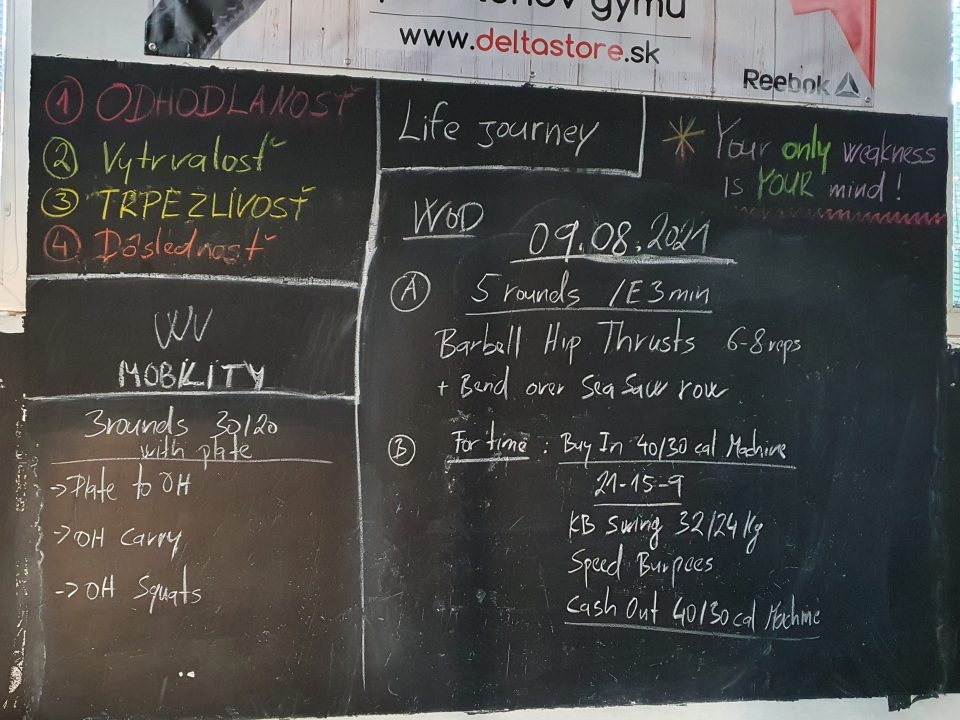 gymu
www.deltastore.sk
Reebok
1 ODHODLANOSŤ
2 Vytrvalosť
3 TRPEZLIVOSŤ
4 Dôslednosť
Life journey
Your only weakness
is YOUR mind!
WU
MOBILITY
3 rounds 30/20
with plate
→ Plate to OH
→ OH Carry
→ OH Squats
WOD
09.08.2021
A 5 rounds /E3min
Barbell Hip Thrusts 6-8 reps
+ Bend over Sea Saw row
B For time: Buy In 40/30 cal Machine
21-15-9
KB Swing 32/24 kg
Speed Burpees
Cash Out 40/30 cal Machine